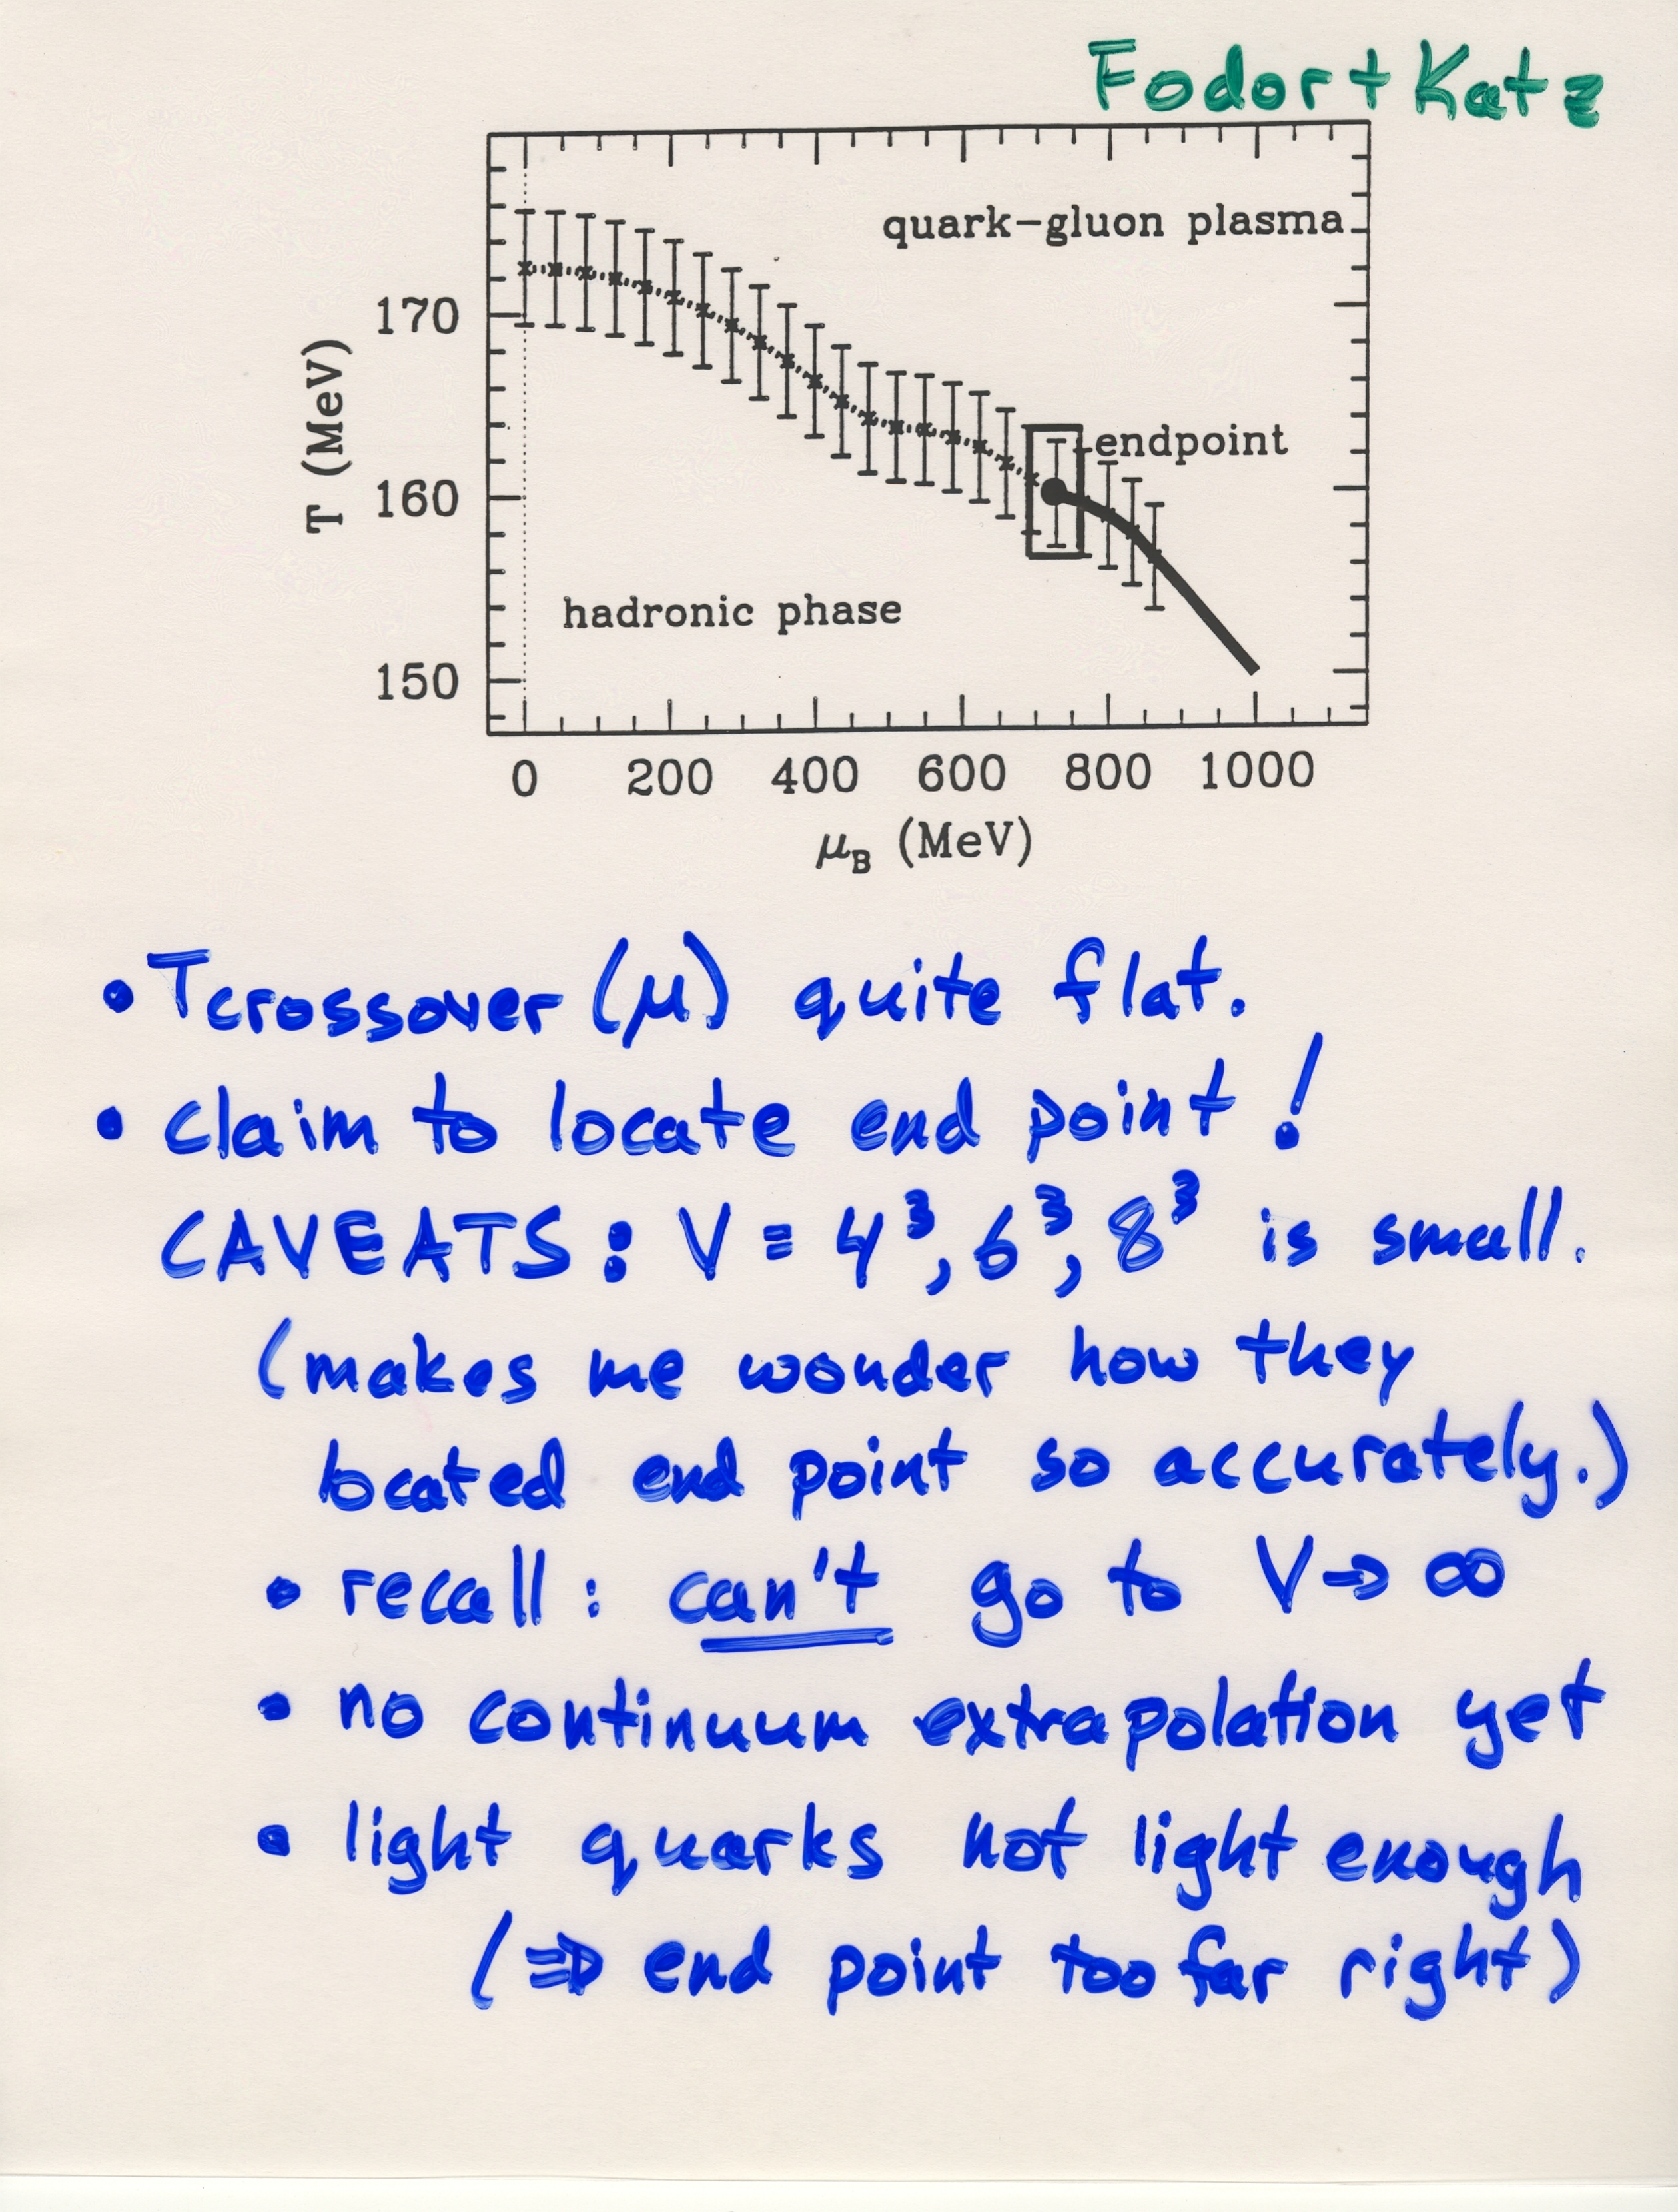 Fodor + Katz
quark-gluon plasma
170
T (MeV)
endpoint
160
hadronic phase
150
0 200 400 600 800 1000
μB (MeV)
• Tcrossover (μ) quite flat.
• claim to locate end point!
CAVEATS: V = 4³, 6³, 8³ is small.
(makes me wonder how they
located end point so accurately.)
• recall: can't go to V → ∞
• no continuum extrapolation yet
• light quarks not light enough
(⇒ end point too far right)